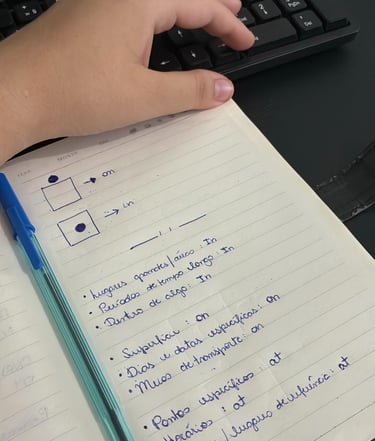 → on
→ in
• Lugares grandes/áreas: In
• Períodos de tempo longo: In
• Dentro de algo: In
• Superfície: on
• Dias e datas específicas: on
• Meios de transporte: on
• Pontos específicos: at
Horários: at
/lugares de referência: at